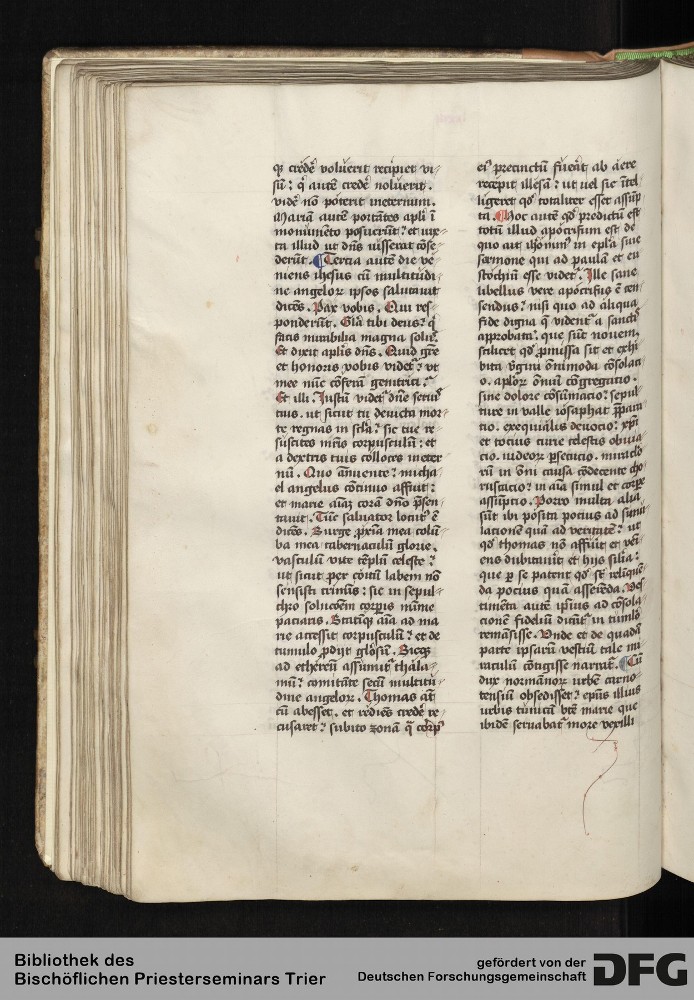 qͥ credẽ voluerit recipiet vi-
sũ : qͥ autẽ credẽ noluerit .
videẽ nõ poterit ineternum .
Mariam autẽ portãtes apli ĩ
monumẽto posuerũt : et iux-
ta illud ut dñs iusserat cõse-
derũt . Tercia autẽ die ve-
niens ihesus cũ multitudi-
ne angelor ipsos salutauit
dicẽs . Pax vobis . Qui res-
ponderũt . Glã tibi deus : qͥ
facis mirabilia magna solus .
Et dixit aplis dñs . Quid grẽ
et honoris vobis videt᷑ : vt
mee nũc cõferã genitrici :
Et illi . Iustũ videt᷑ dñe seruis
tuis . ut sicut tu deuicta mor-
te regnas in scl̃a : sic tue re-
suscites mr̃is corpusculũ : et
a dextris tuis colloces ineter-
nũ . Quo ãnuente : micha-
el angelus cõtinuo affuit :
et marie aĩaʒ corã dño p̃sen-
tauit . Tũc saluator locutꝰ ẽ
dicẽs . Surge p̃xĩa mea colũ-
ba mea tabernaculũ glorie .
vasculũ vite tẽplũ celeste :
ut sicut per coitũ labem nõ
sensisti crimĩs : sic in sepul-
chro solucõem corpĩs mĩme
paciaris . Statĩqꝫ aĩa ad ma-
rie accessit corpusculũ : et de
tumulo ꝓdijt gl̃osũ . Sicqꝫ
ad ethereũ assumit᷑ thala-
mũ : comitãte secũ multitu-
dine angelor . Thomas aũt
cũ abesset . et rediẽs credẽ re-
cusaret : subito zonã q̃ corpꝰ
eiꝰ precinctũ fuerat ab aere
recepit illesã : ut vel sic ĩtel-
ligeret qd̃ totaliter esset assũp-
ta . Hoc autẽ qd̃ predictũ est
totũ illud apocrifum est de
quo ait iheronimꝰ in ep̃la siue
sermone qui ad paulã et eu-
stochiũ esse videt᷑ . Ille sane
libellus vere apocrifus ẽ cen-
sendus : nisi quo ad aliqua
fide digna q̃ vident᷑ a sanctis
approbata . que sũt nouem .
scilicet qd̃ ꝓmissa sit et exhi-
bita v̑gini õnimoda cõsolaci-
o . apl̃or õniũ cõgregacio .
sine dolore cõsũmacio : sepul-
ture in valle iosaphat p̃para-
tio . exequialis deuocio : xp̃i
et tocius curie celestis obuia-
cio . iudeor p̱secucio . miraclo-
rũ in õni causa cõdecente cho-
ruscacio : in aĩa simul et corpe
assũptio . Porro multa alia
sũt ibi posita pocius ad simu-
lacionẽ quã ad veritatẽ : ut
qd̃ thomas nõ affuit et veni-
ens dubitauit et hijs silia :
que p̱ se patent qd̃ sĩt relĩquen-
da pocius quã asserẽda . Ves-
timẽta autẽ ipsius ad cõsola-
cionẽ fideliũ dicũt᷑ in tumlo
remãsisse . Vnde et de quadã
parte ipsarũ vestiũ tale mi-
raculũ cõtigisse narrat᷑ . Cũ
dux normãnor urbẽ carno-
tensiũ obsedisset : ep̃us illius
urbis tunicã btẽ marie que
ibidẽ seruabat᷑ more vexilli
Bibliothek des
Bischöflichen Priesterseminars Trier
gefördert von der
Deutschen Forschungsgemeinschaft
DFG